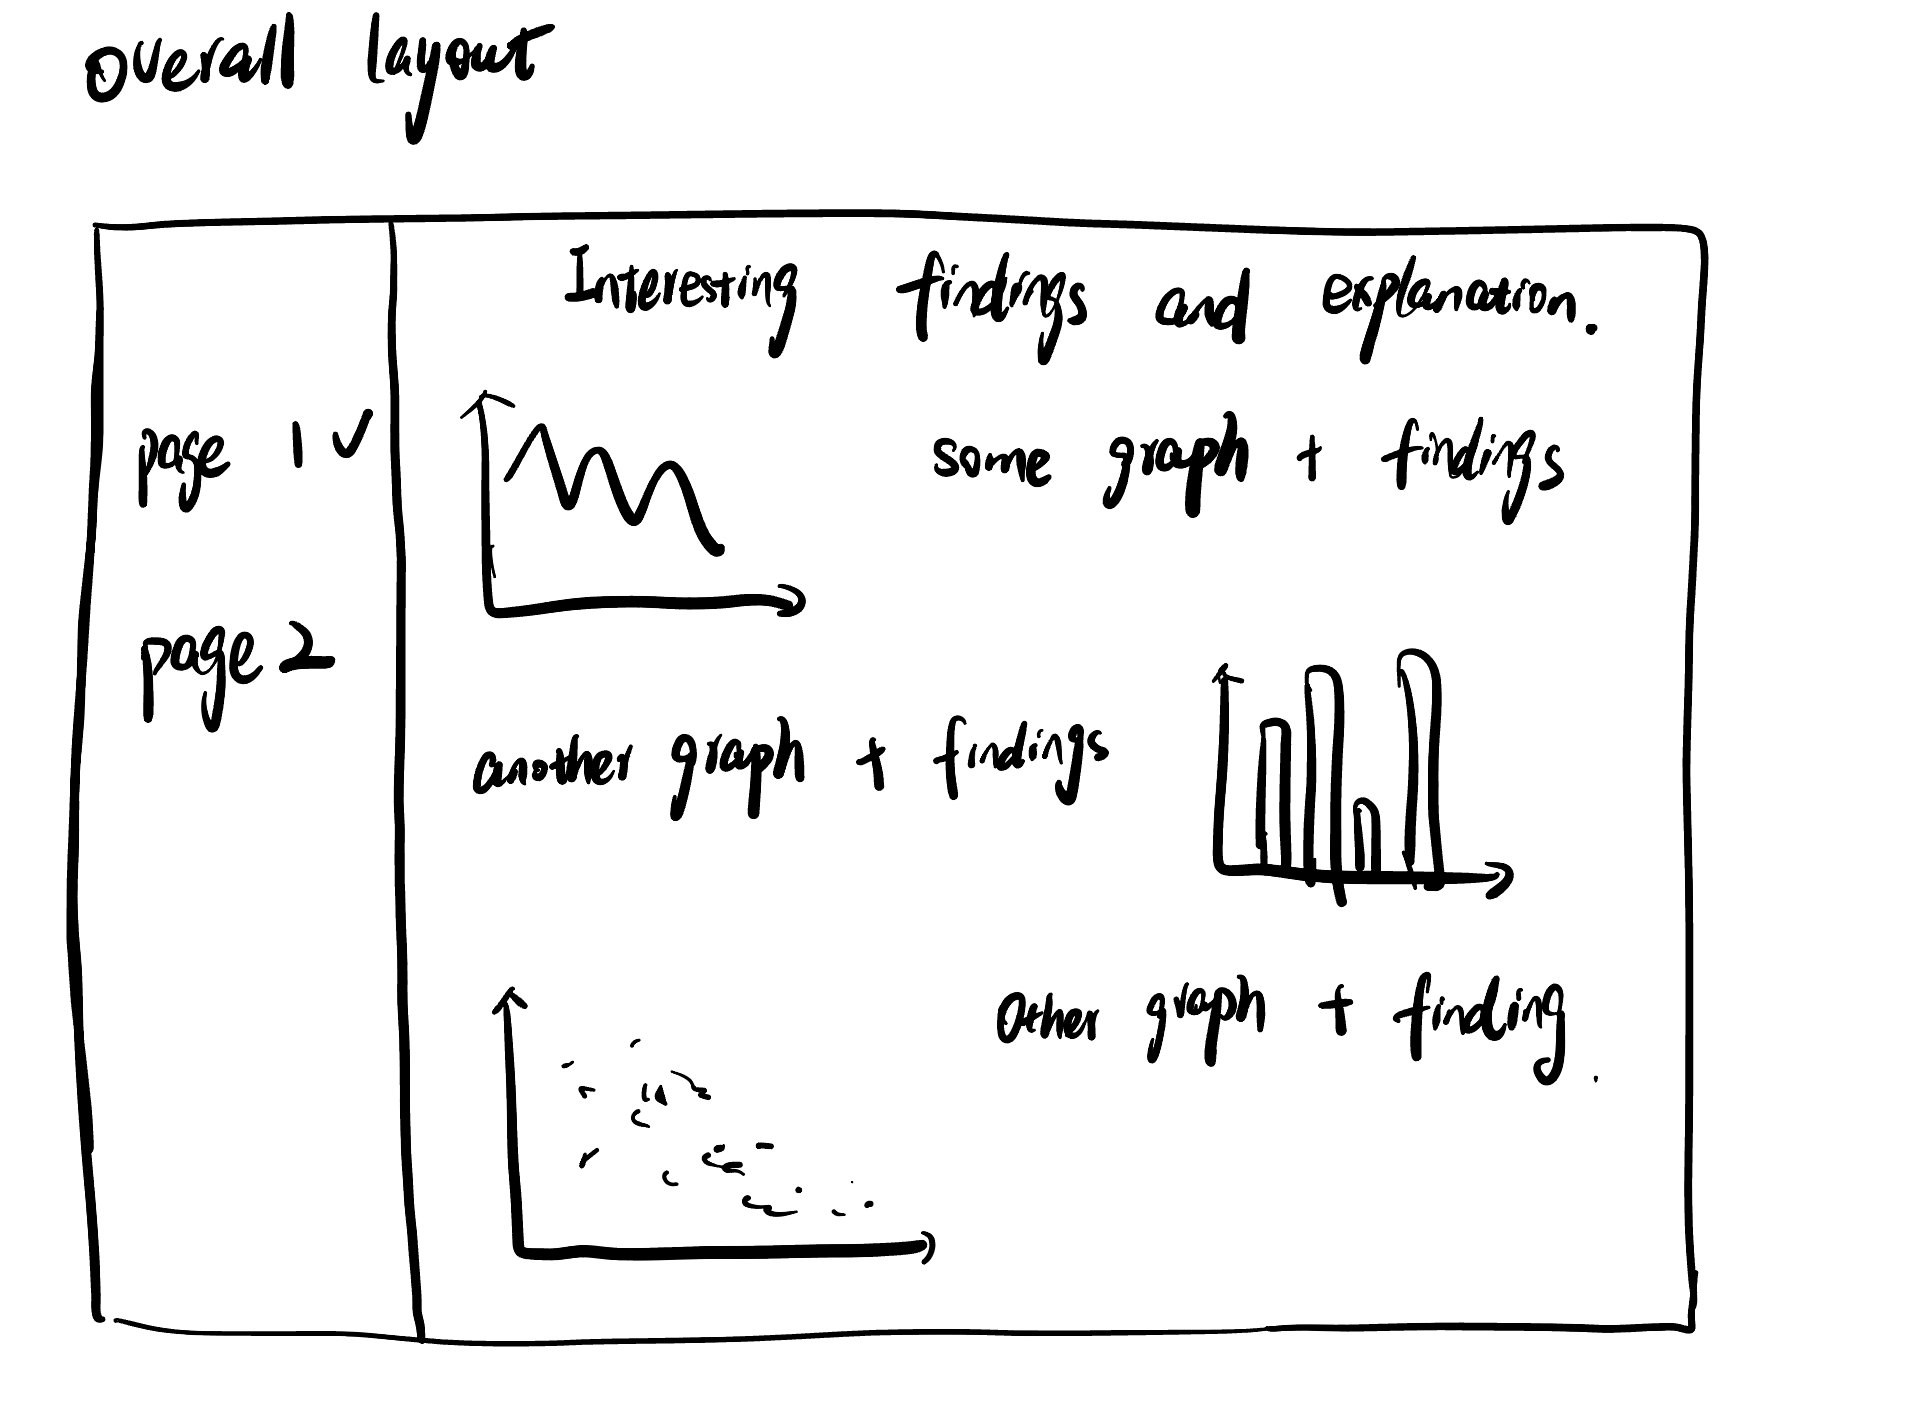 overall layout
Interesting findings and explanation.
page 1 ✓
some graph + findings
page 2
another graph + findings
Other graph + finding.